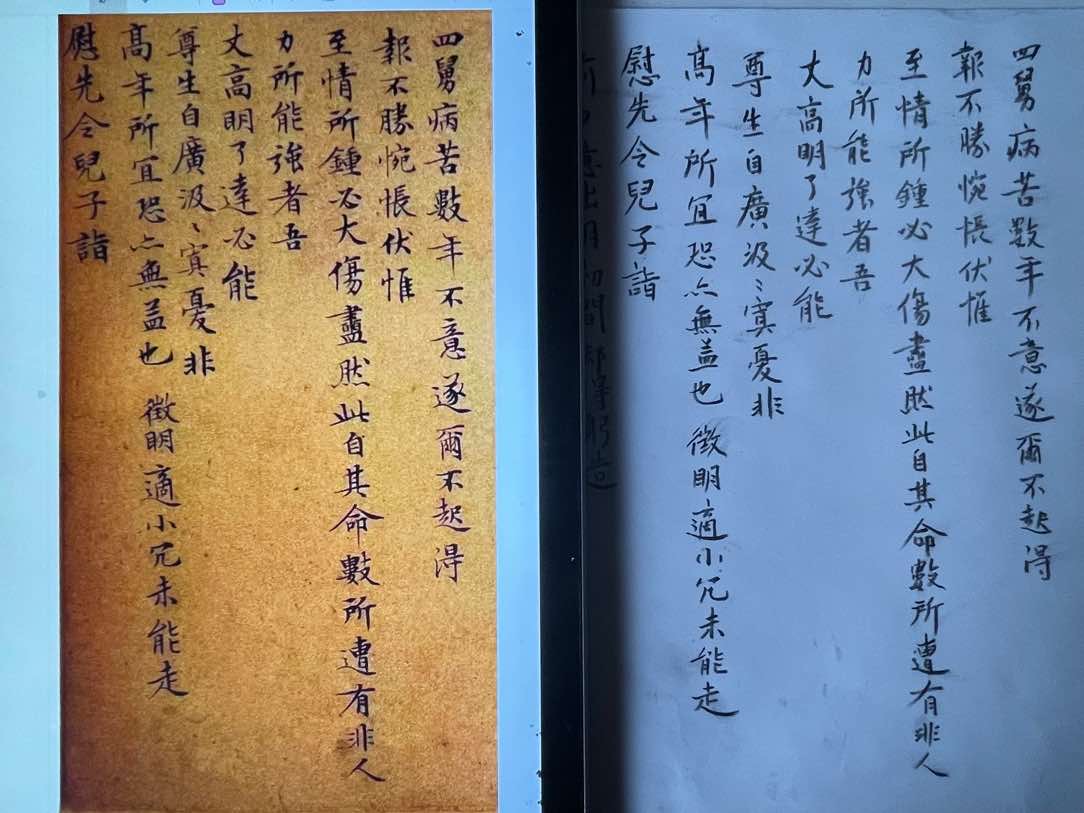 四舅病苦數年不意遂爾不起得
報不勝惋悵伏惟
至情所鍾必大傷盡然此自其命數所遭有非人
力所能強者吾
丈高明了達必能
尊生自廣汲〻寘憂非
高年所宜恐亦無益也 徵明適小冗未能走
慰先令兒子詣
四舅病苦數年不意遂爾不起得
報不勝惋悵伏惟
至情所鍾必大傷盡然此自其命數所遭有非人
力所能強者吾
丈高明了達必能
尊生自廣汲〻寘憂非
高年所宜恐亦無益也 徵明適小冗未能走
慰先令兒子詣